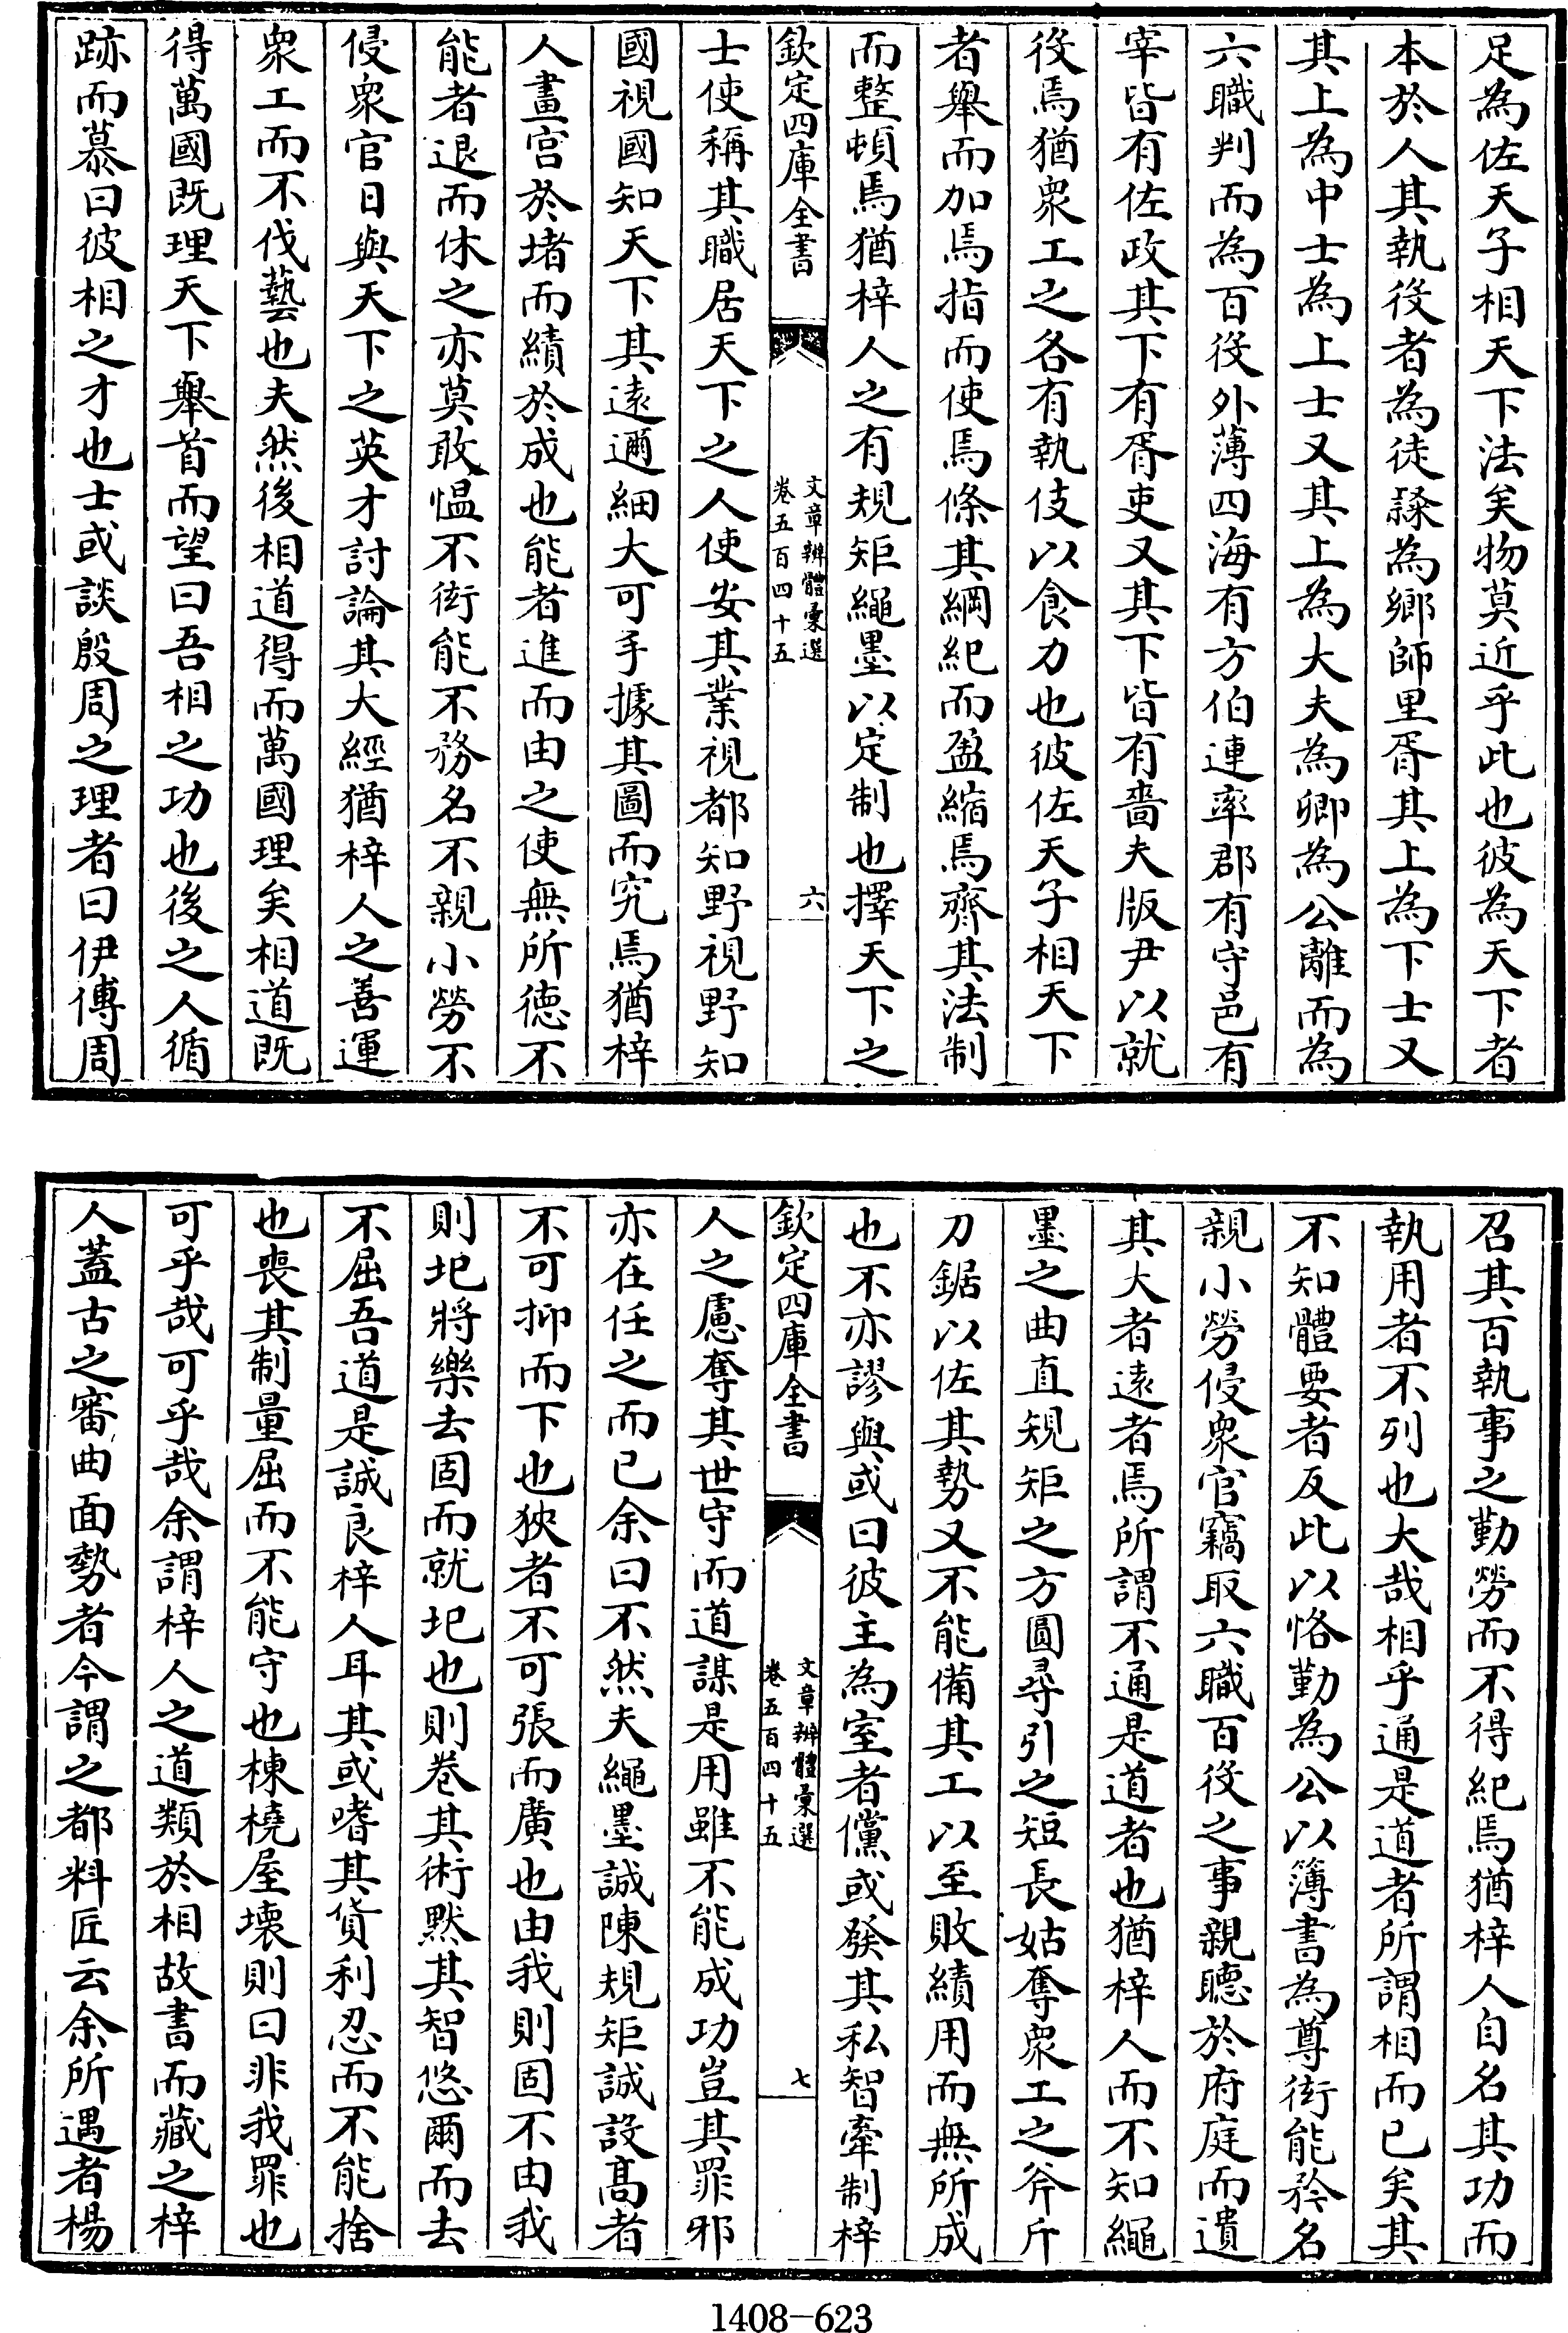 足為佐天子相天下法矣物莫近乎此也彼為天下者
本於人其執役者為徒隸為鄉師里胥其上為下士又
其上為中士為上士又其上為大夫為卿為公離而為
六職判而為百役外薄四海有方伯連率郡有守邑有
宰皆有佐政其下有胥吏又其下皆有嗇夫版尹以就
役焉猶衆工之各有執伎以食力也彼佐天子相天下
者舉而加焉指而使焉條其綱紀而盈縮焉齊其法制
而整頓焉猶梓人之有規矩繩墨以定制也擇天下之
欽定四庫全書
文章辨體彙選
卷五百四十五
六
士使稱其職居天下之人使安其業視都知野視野知
國視國知天下其遠邇細大可手據其圖而究焉猶梓
人畫宮於堵而績於成也能者進而由之使無所德不
能者退而休之亦莫敢愠不衒能不務名不親小勞不
侵衆官日與天下之英才討論其大經猶梓人之善運
衆工而不伐藝也夫然後相道得而萬國理矣相道既
得萬國既理天下舉首而望曰吾相之功也後之人循
跡而慕曰彼相之才也士或談殷周之理者曰伊傅周
召其百執事之勤勞而不得紀焉猶梓人自名其功而
執用者不列也大哉相乎通是道者所謂相而已矣其
不知體要者反此以恪勤為公以簿書為尊衒能矜名
親小勞侵衆官竊取六職百役之事親聽於府庭而遺
其大者遠者焉所謂不通是道者也猶梓人而不知繩
墨之曲直規矩之方圓尋引之短長姑奪衆工之斧斤
刀鋸以佐其勢又不能備其工以至敗績用而無所成
也不亦謬與或曰彼主為室者儻或發其私智牽制梓
欽定四庫全書
文章辨體彙選
卷五百四十五
七
人之慮奪其世守而道謀是用雖不能成功豈其罪邪
亦在任之而已余曰不然夫繩墨誠陳規矩誠設髙者
不可抑而下也狹者不可張而廣也由我則固不由我
則圮將樂去固而就圮也則卷其術黙其智悠爾而去
不屈吾道是誠良梓人耳其或嗜其貨利忍而不能捨
也喪其制量屈而不能守也棟橈屋壊則曰非我罪也
可乎哉可乎哉余謂梓人之道類於相故書而藏之梓
人蓋古之審曲面勢者今謂之都料匠云余所遇者楊
1408-623